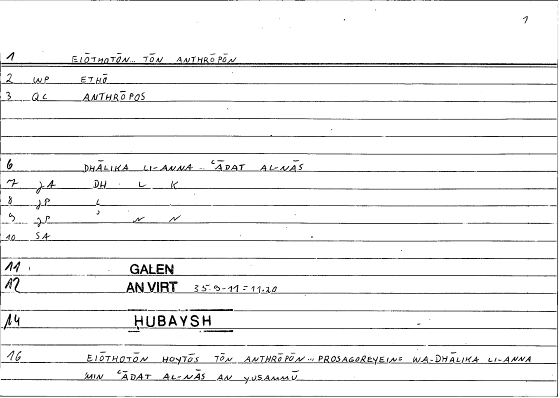 1
1 EIŌTHOTŌN.. TŌN ANTHRŌPŌN
2 WP ETHŌ
3 QC ANTHRŌPOS
6 DHĀLIKA LI-ANNA.. ʿĀDAT AL-NĀS
7 JA DH L K
8 JP
9 JP N N
10 SA
11 GALEN
12 AN VIRT 35 9-11=11.20
14 HUBAYSH
16 EIŌTHOTŌN HOYTŌS TŌN ANTHRŌPŌN.. PROSAGOREYEING WA-DHĀLIKA LI-ANNA
MIN ʿĀDAT AL-NĀS AN YUSAMMŪ